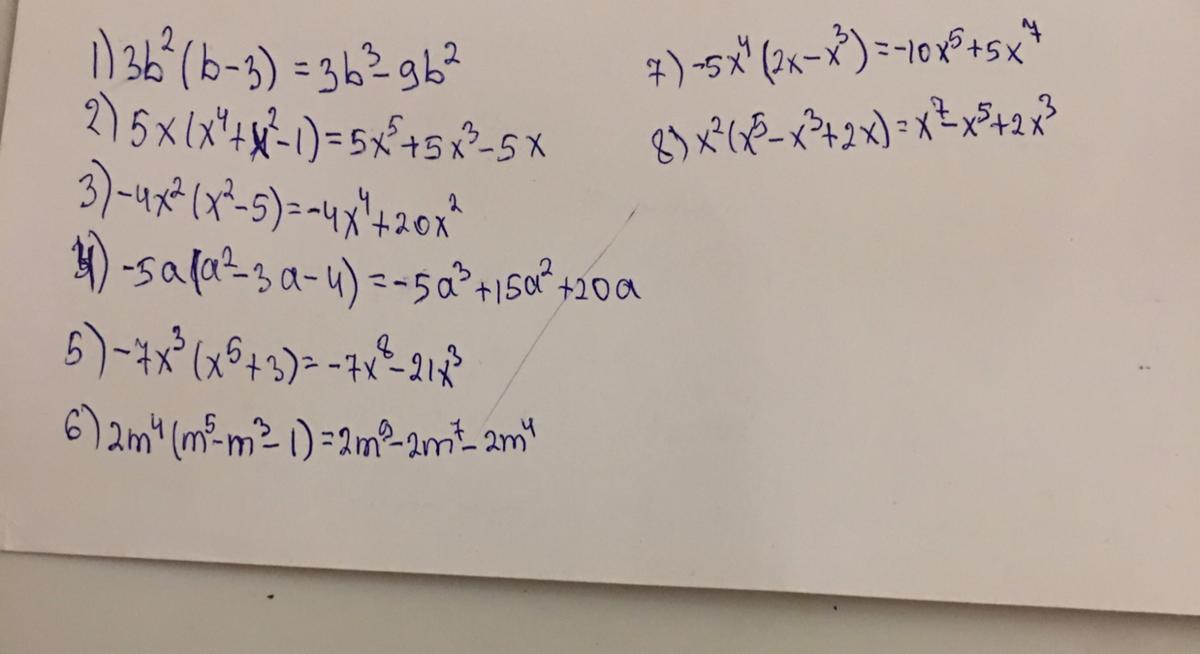 1) 3b²(b-3) = 3b³-9b²
2) 5x(x⁴+x²-1)=5x⁵+5x³-5x
3) -4x²(x²-5)=-4x⁴+20x²
4) -5a(a²-3a-4)=-5a³+15a²+20a
5) -7x³(x⁵+3)=-7x⁸-21x³
6) 2m⁴(m⁵-m³-1)=2m⁹-2m⁷-2m⁴
7) -5x⁴(2x-x³)=-10x⁵+5x⁷
8) x²(x⁵-x³+2x)=x⁷-x⁵+2x³